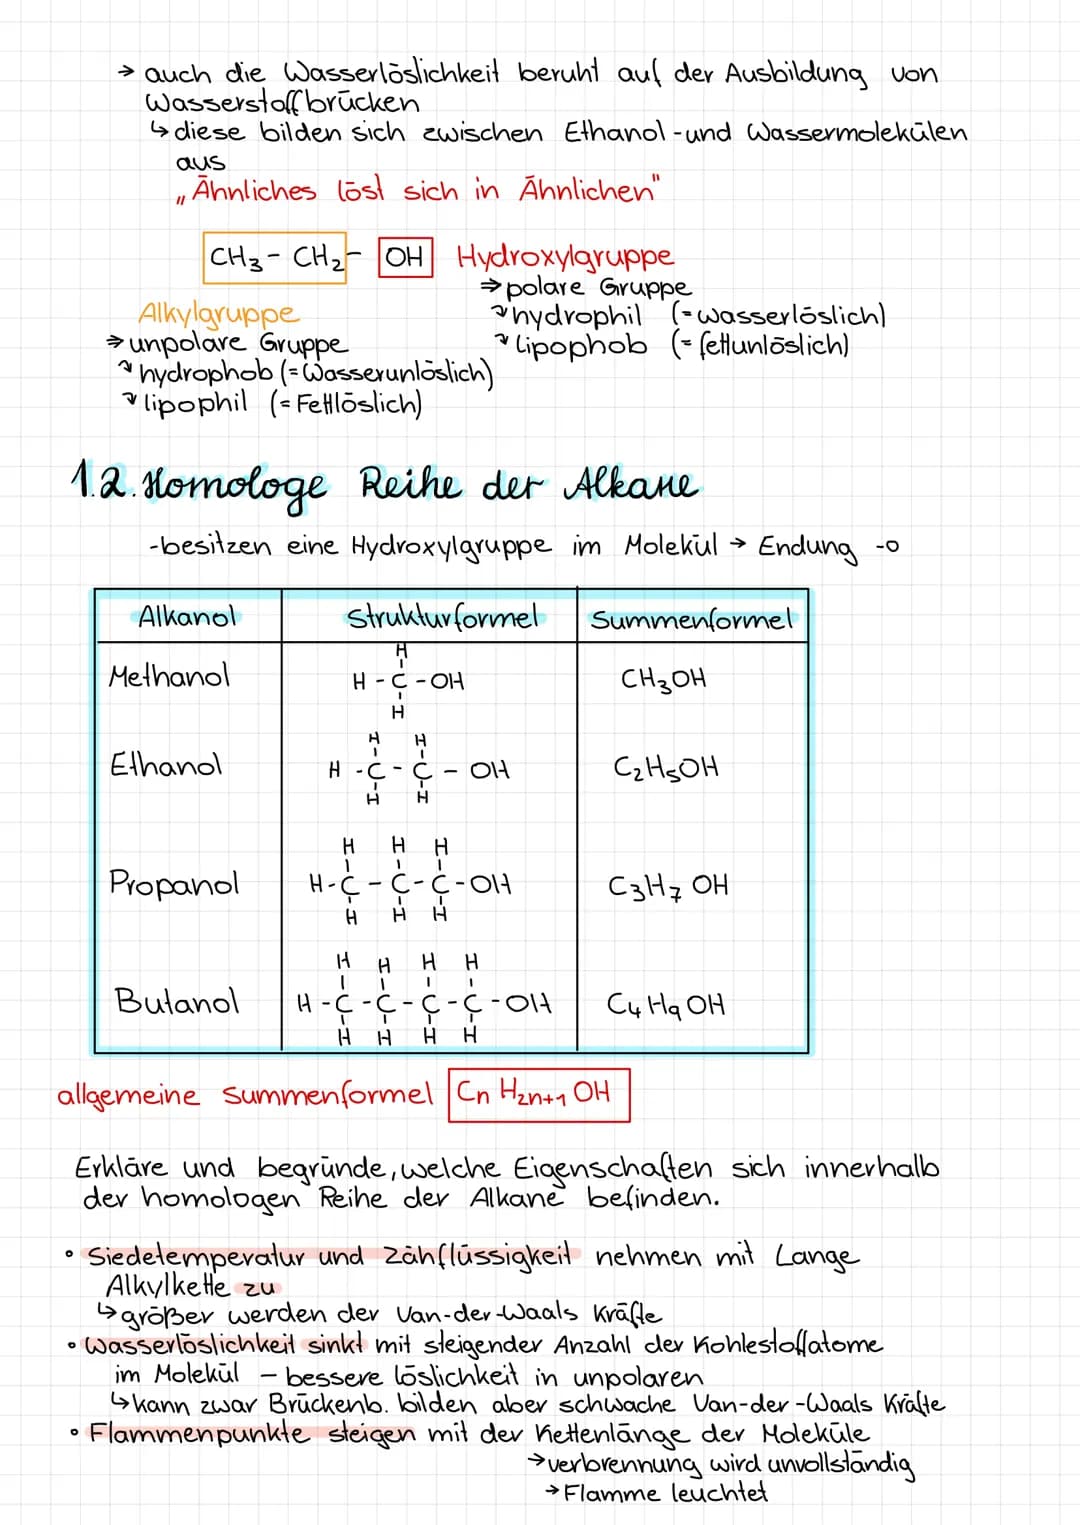 → auch die Wasserlöslichkeit beruht auf der Ausbildung von
Wasserstoffbrücken
↳ diese bilden sich zwischen Ethanol-und Wassermolekülen
aus
„Ähnliches löst sich in Ähnlichen"
CH₃ - CH₂ - OH Hydroxylgruppe
⇒ polare Gruppe
Alkylgruppe
hydrophil (= wasserlöslich)
⇒ unpolare Gruppe
lipophob (= fettunlöslich)
hydrophob (= Wasserunlöslich)
lipophil (= Fettlöslich)
1.2. Homologe Reihe der Alkane
-besitzen eine Hydroxylgruppe im Molekül → Endung -o
Alkanol Strukturformel Summenformel
H
Methanol H - C - OH CH₃OH
H
H H
Ethanol H - C - C - OH C₂H₅OH
H H
H H H
Propanol H - C - C - C - OH C₃H₇ OH
H H H
H H H H
Butanol H - C - C - C - C - OH C₄H₉OH
H H H H
allgemeine Summenformel Cn H₂n+₁ OH
Erkläre und begründe, welche Eigenschaften sich innerhalb
der homologen Reihe der Alkane befinden.
• Siedetemperatur und Zähflüssigkeit nehmen mit Lange
Alkylkette zu
↳ größer werden der Van-der-Waals Kräfte
• Wasserlöslichkeit sinkt mit steigender Anzahl der Kohlestoffatome
im Molekül – bessere löslichkeit in unpolaren
↳ kann zwar Brückenb. bilden aber schwache Van-der-Waals Kräfte
• Flammenpunkte steigen mit der Kettenlänge der Moleküle
→ verbrennung wird unvollständig
→ Flamme leuchtet